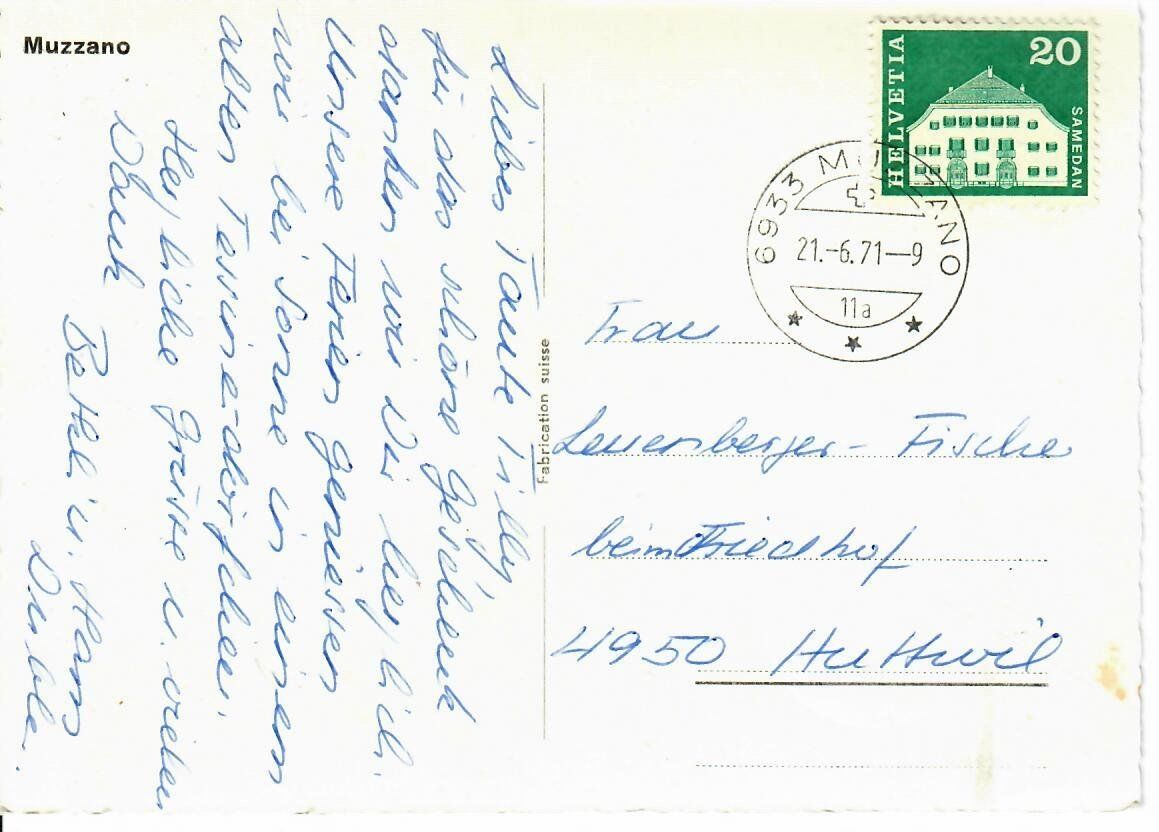 Muzzano
Liebes Tante Tilly
für das schöne Geschenk
danken wir Dir herzlich.
Unsere Ferien geniessen
wir bei Sonne in einem
alten Tessinerdörfchen.
Herzliche Grüsse u. vielen
Dank
Bethli u. Hans
HELVETIA
20
SAMEDAN
6933 MUZZANO
21.-6.71—9
11a
Fabrication suisse
Frau
Leuenberger-Fischer
beim Friedhof
4950 Huttwil